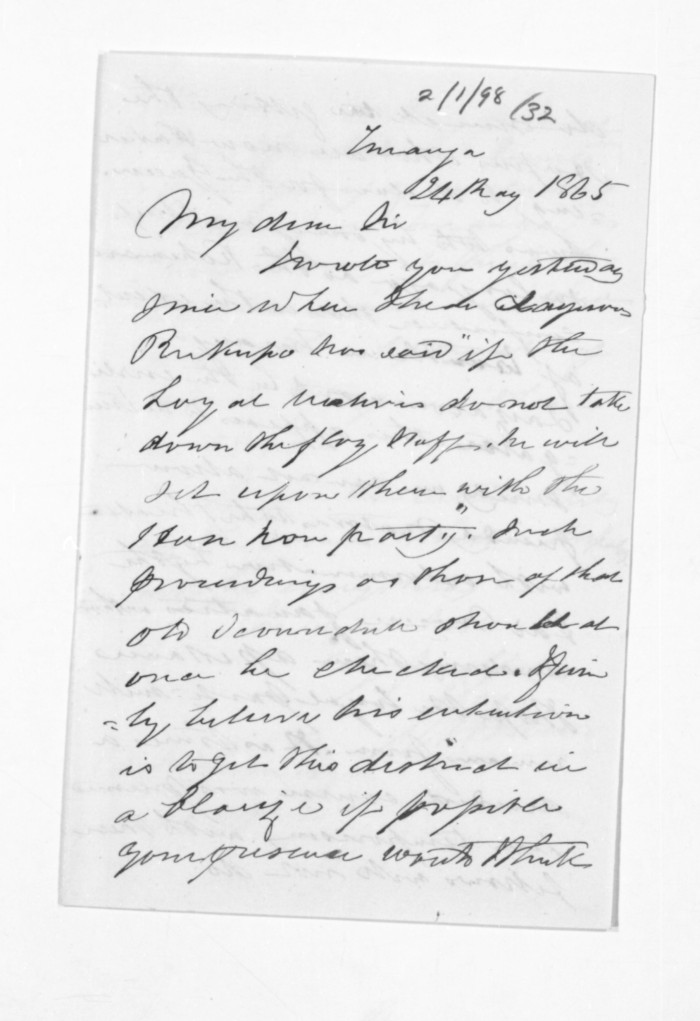 2/1/98/32
Turanga
24 May 1865
My dear Sir
I wrote you yesterday
since when I hear
Rukupo has said "if the
Loyal natives do not take
down the flag staff. he will
set upon them with the
Hau hau party". Such
proceedings as those of that
old Scoundrel should at
once be checked. I firm
=ly believe his intention
is to get this district in
a blaize if possible
your presence would I think